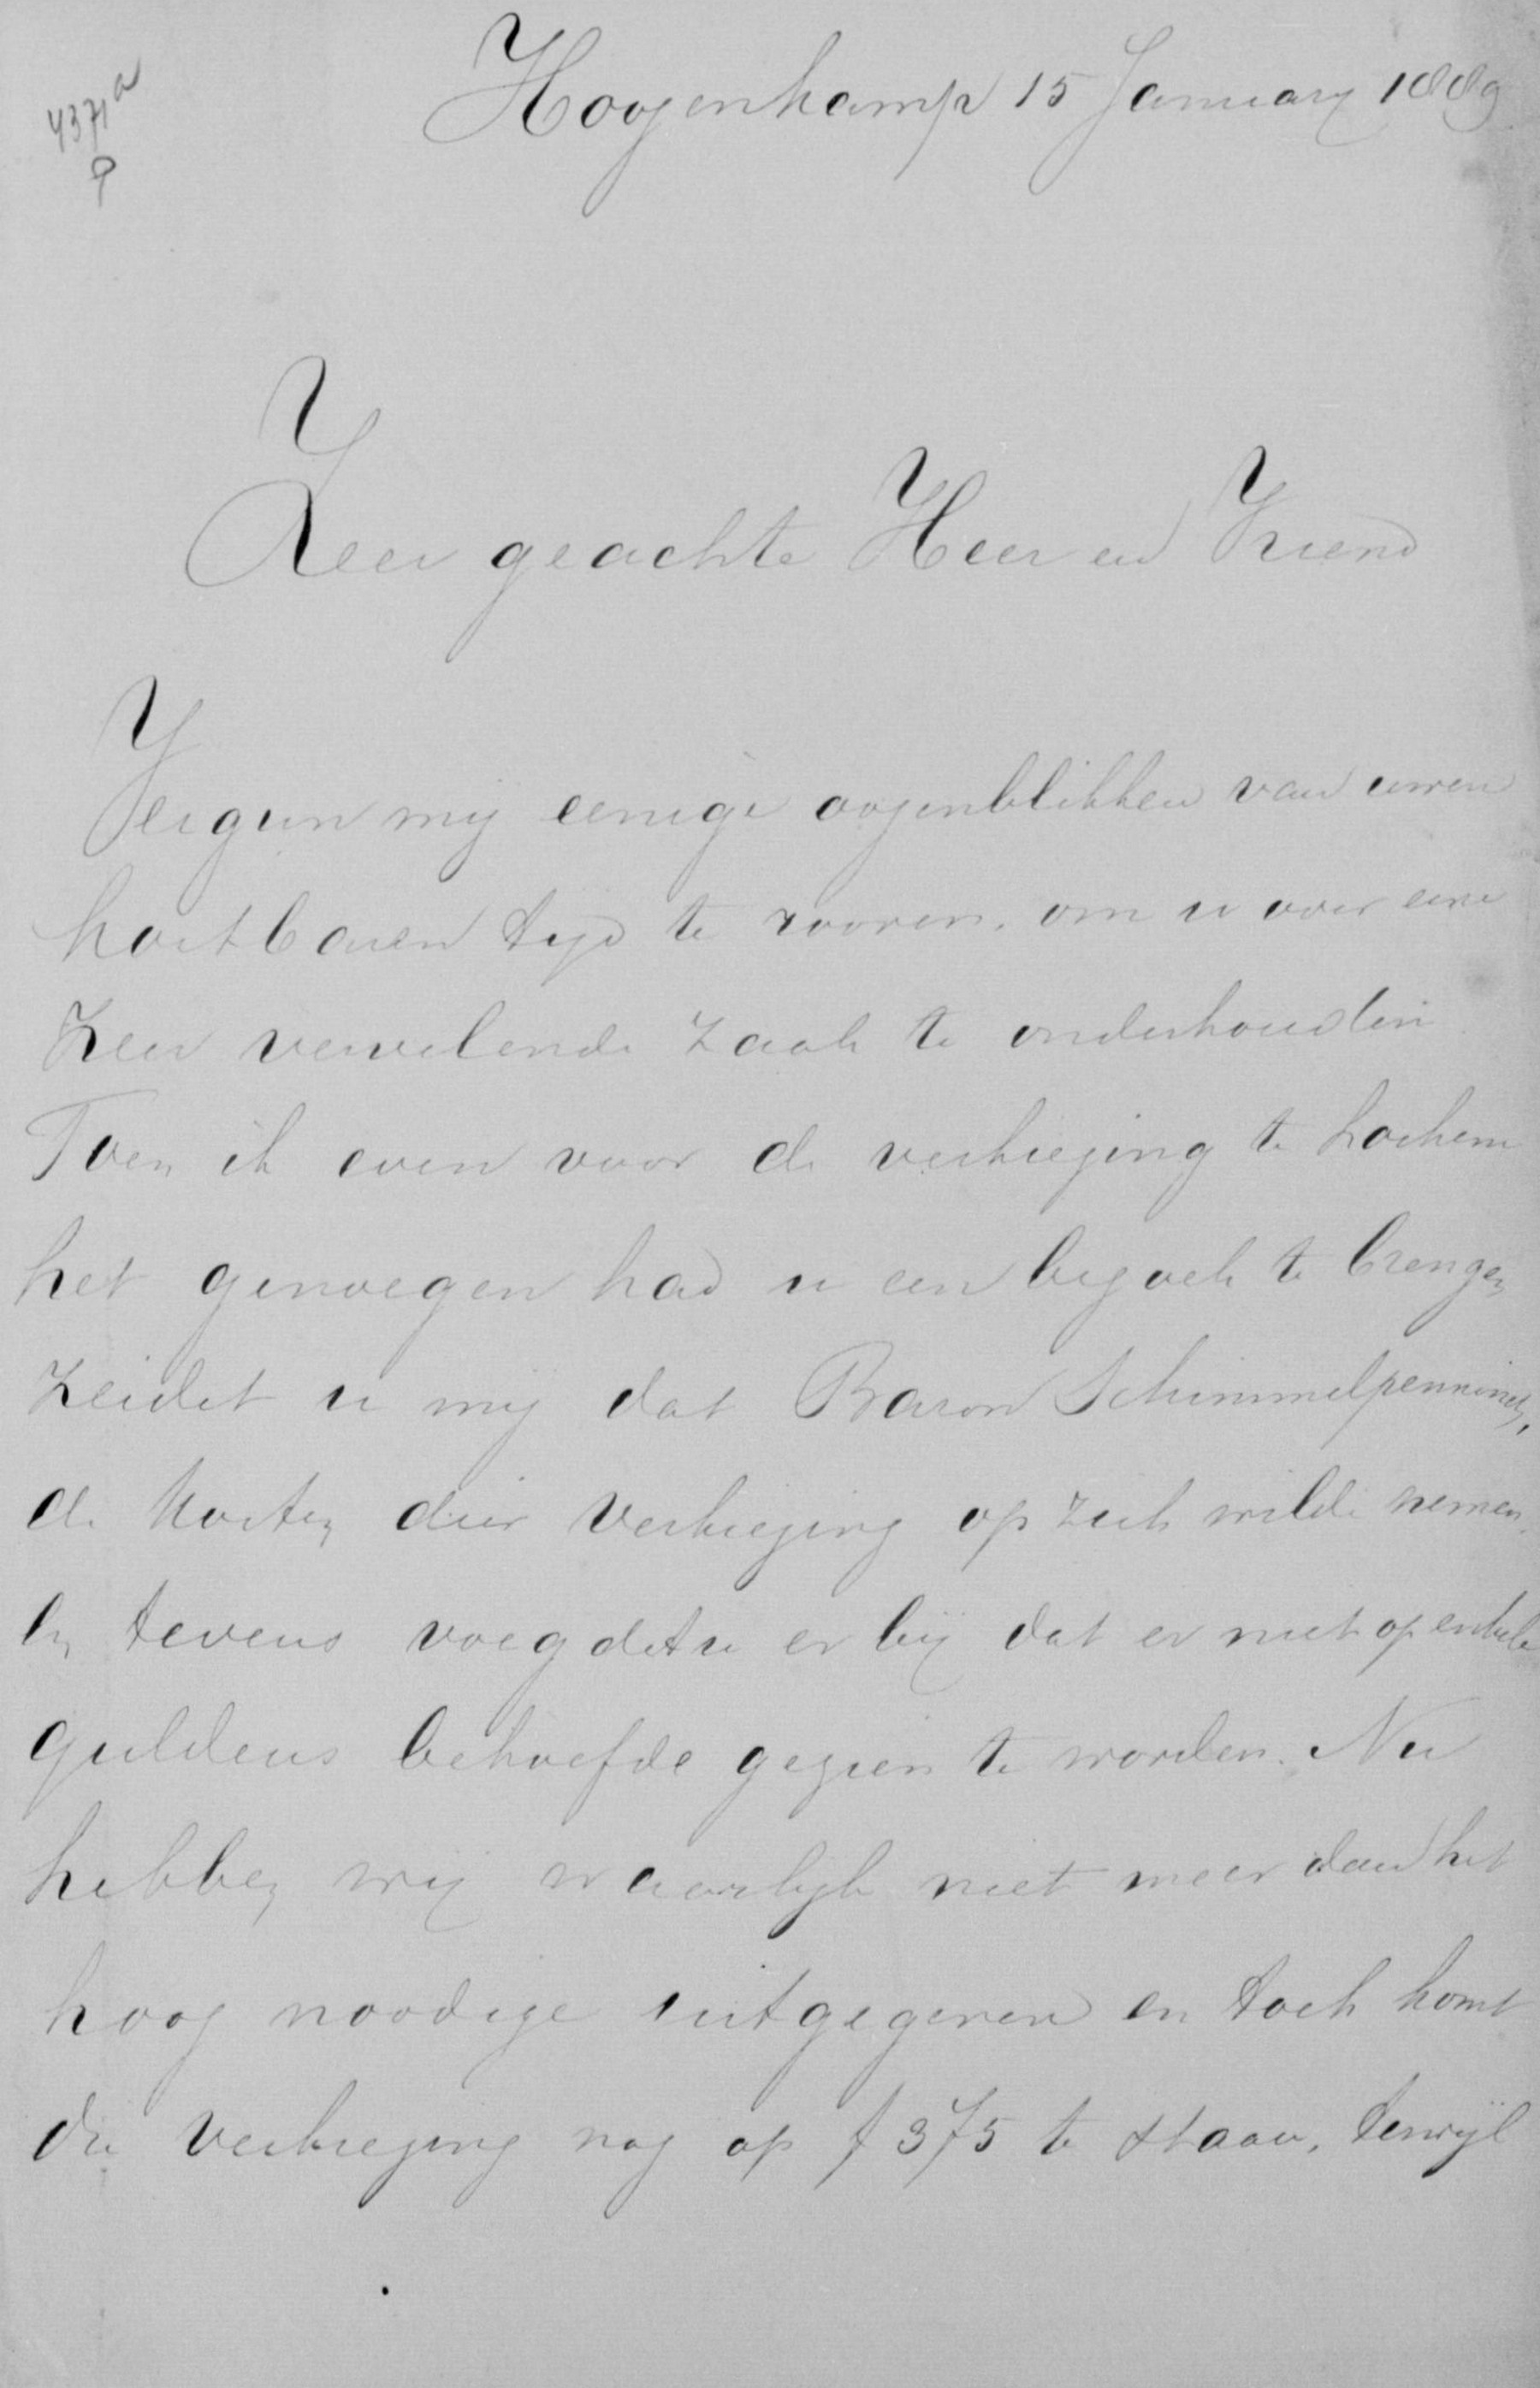 4371a
Hoogenkamp 15 January 1889
Zeer geachte Heer en Vriend
Vergun mij eenige oogenblikken van uwen
kostbaren tijd te rooven, om u over eene
zeer vervelende zaak te onderhouden
Toen ik even voor de verkiezing te Lochem
het genoegen had u een bezoek te brengen
zeidet u mij dat Baron Schimmelpenninck,
de kosten dier verkiezing op zich wilde nemen.
En tevens voegdet u er bij dat er niet op enkele
guldens behoefde gezien te worden. Nu
hebben wij waarlijk niet meer dan het
hoog noodige uitgegeven en toch komt
die verkiezing nog op f 375 te staan, terwijl